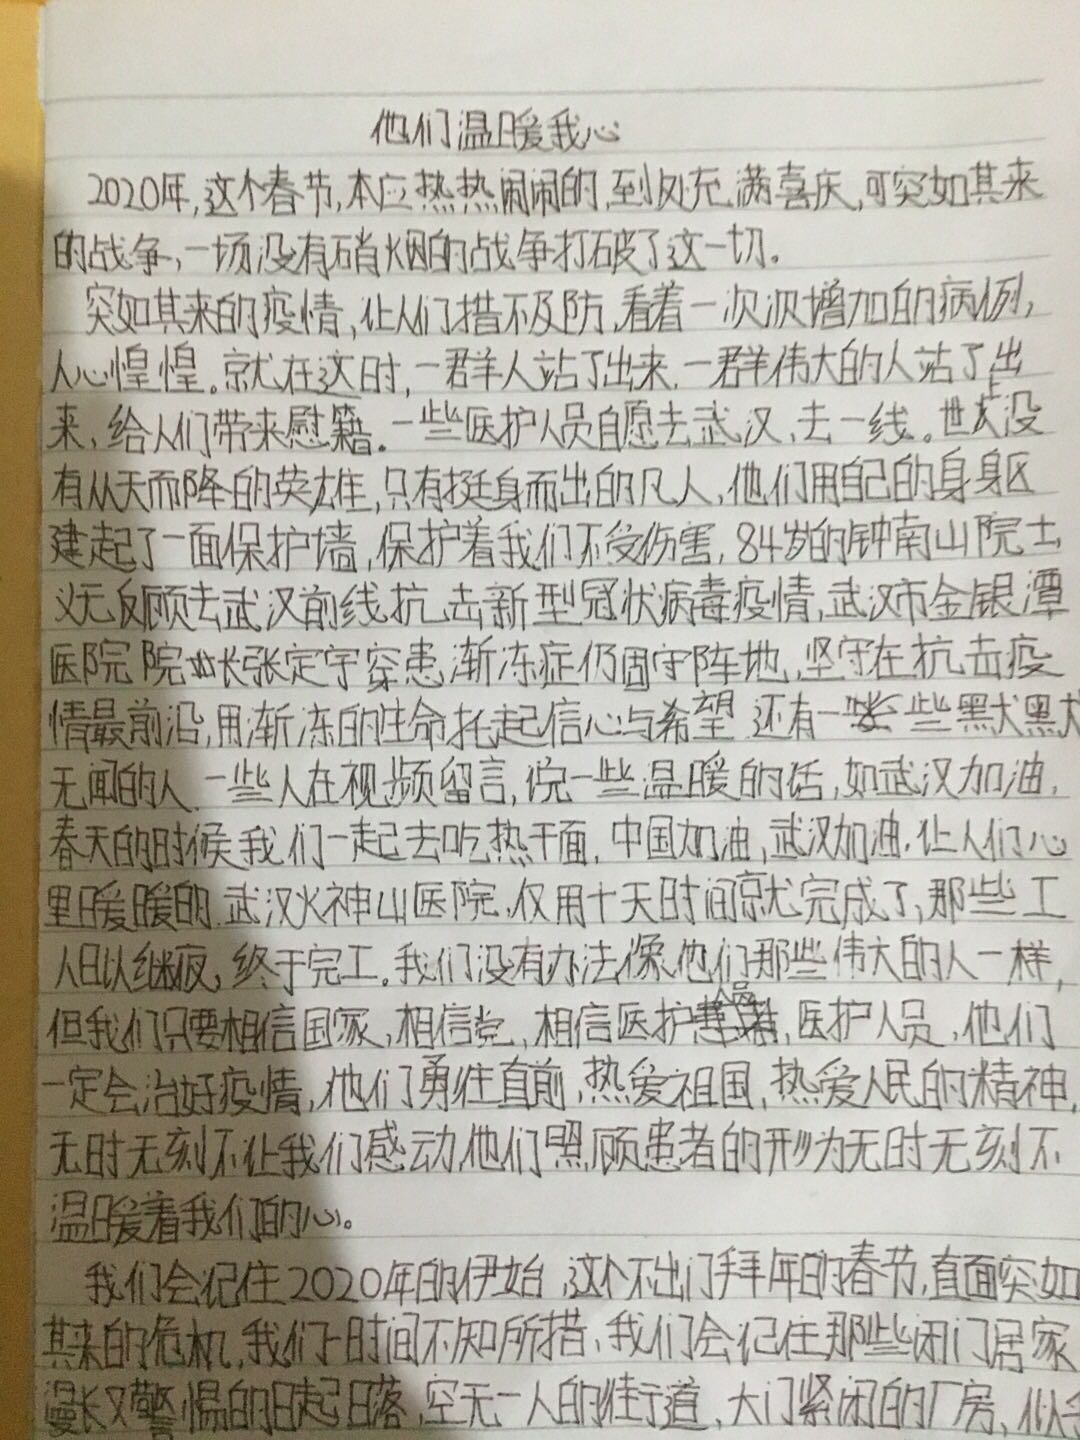 他们温暖我心
2020年,这个春节,本应热热闹闹的,到处充满喜庆,可突如其来
的战争,一场没有硝烟的战争打破了这一切。
突如其来的疫情,让人们措不及防,看着一次次增加的病例,
人心惶惶。就在这时,一群人站了出来,一群伟大的人站了出
来,给人们带来慰籍。一些医护人员自愿去武汉,去一线。世上没
有从天而降的英雄,只有挺身而出的凡人,他们用自己的身躯
建起了一面保护墙,保护着我们不受伤害,84岁的钟南山院士
义无反顾去武汉前线抗击新型冠状病毒疫情,武汉市金银潭
医院院长张定宇穿患渐冻症仍固守阵地,坚守在抗击疫
情最前沿,用渐冻的生命托起信心与希望.还有一些默默
无闻的人.一些人在视频留言,说一些温暖的话,如武汉加油,
春天的时候我们一起去吃热干面,中国加油,武汉加油.让人们心
里暖暖的.武汉火神山医院,仅用十天时间就完成了,那些工
人日以继夜,终于完工。我们没有办法像他们那些伟大的人一样,
但我们只要相信国家,相信党,相信医护人员,医护人员,他们
一定会治好疫情,他们勇往直前,热爱祖国,热爱人民的精神,
无时无刻不让我们感动,他们照顾患者的形为无时无刻不
温暖着我们的心。
我们会记住2020年的伊始,这个不出门拜年的春节,直面突如
其来的危机,我们一时间不知所措,我们会记住那些闭门居家
漫长又警惕的日起日落,空无一人的街道,大门紧闭的厂房,似乎